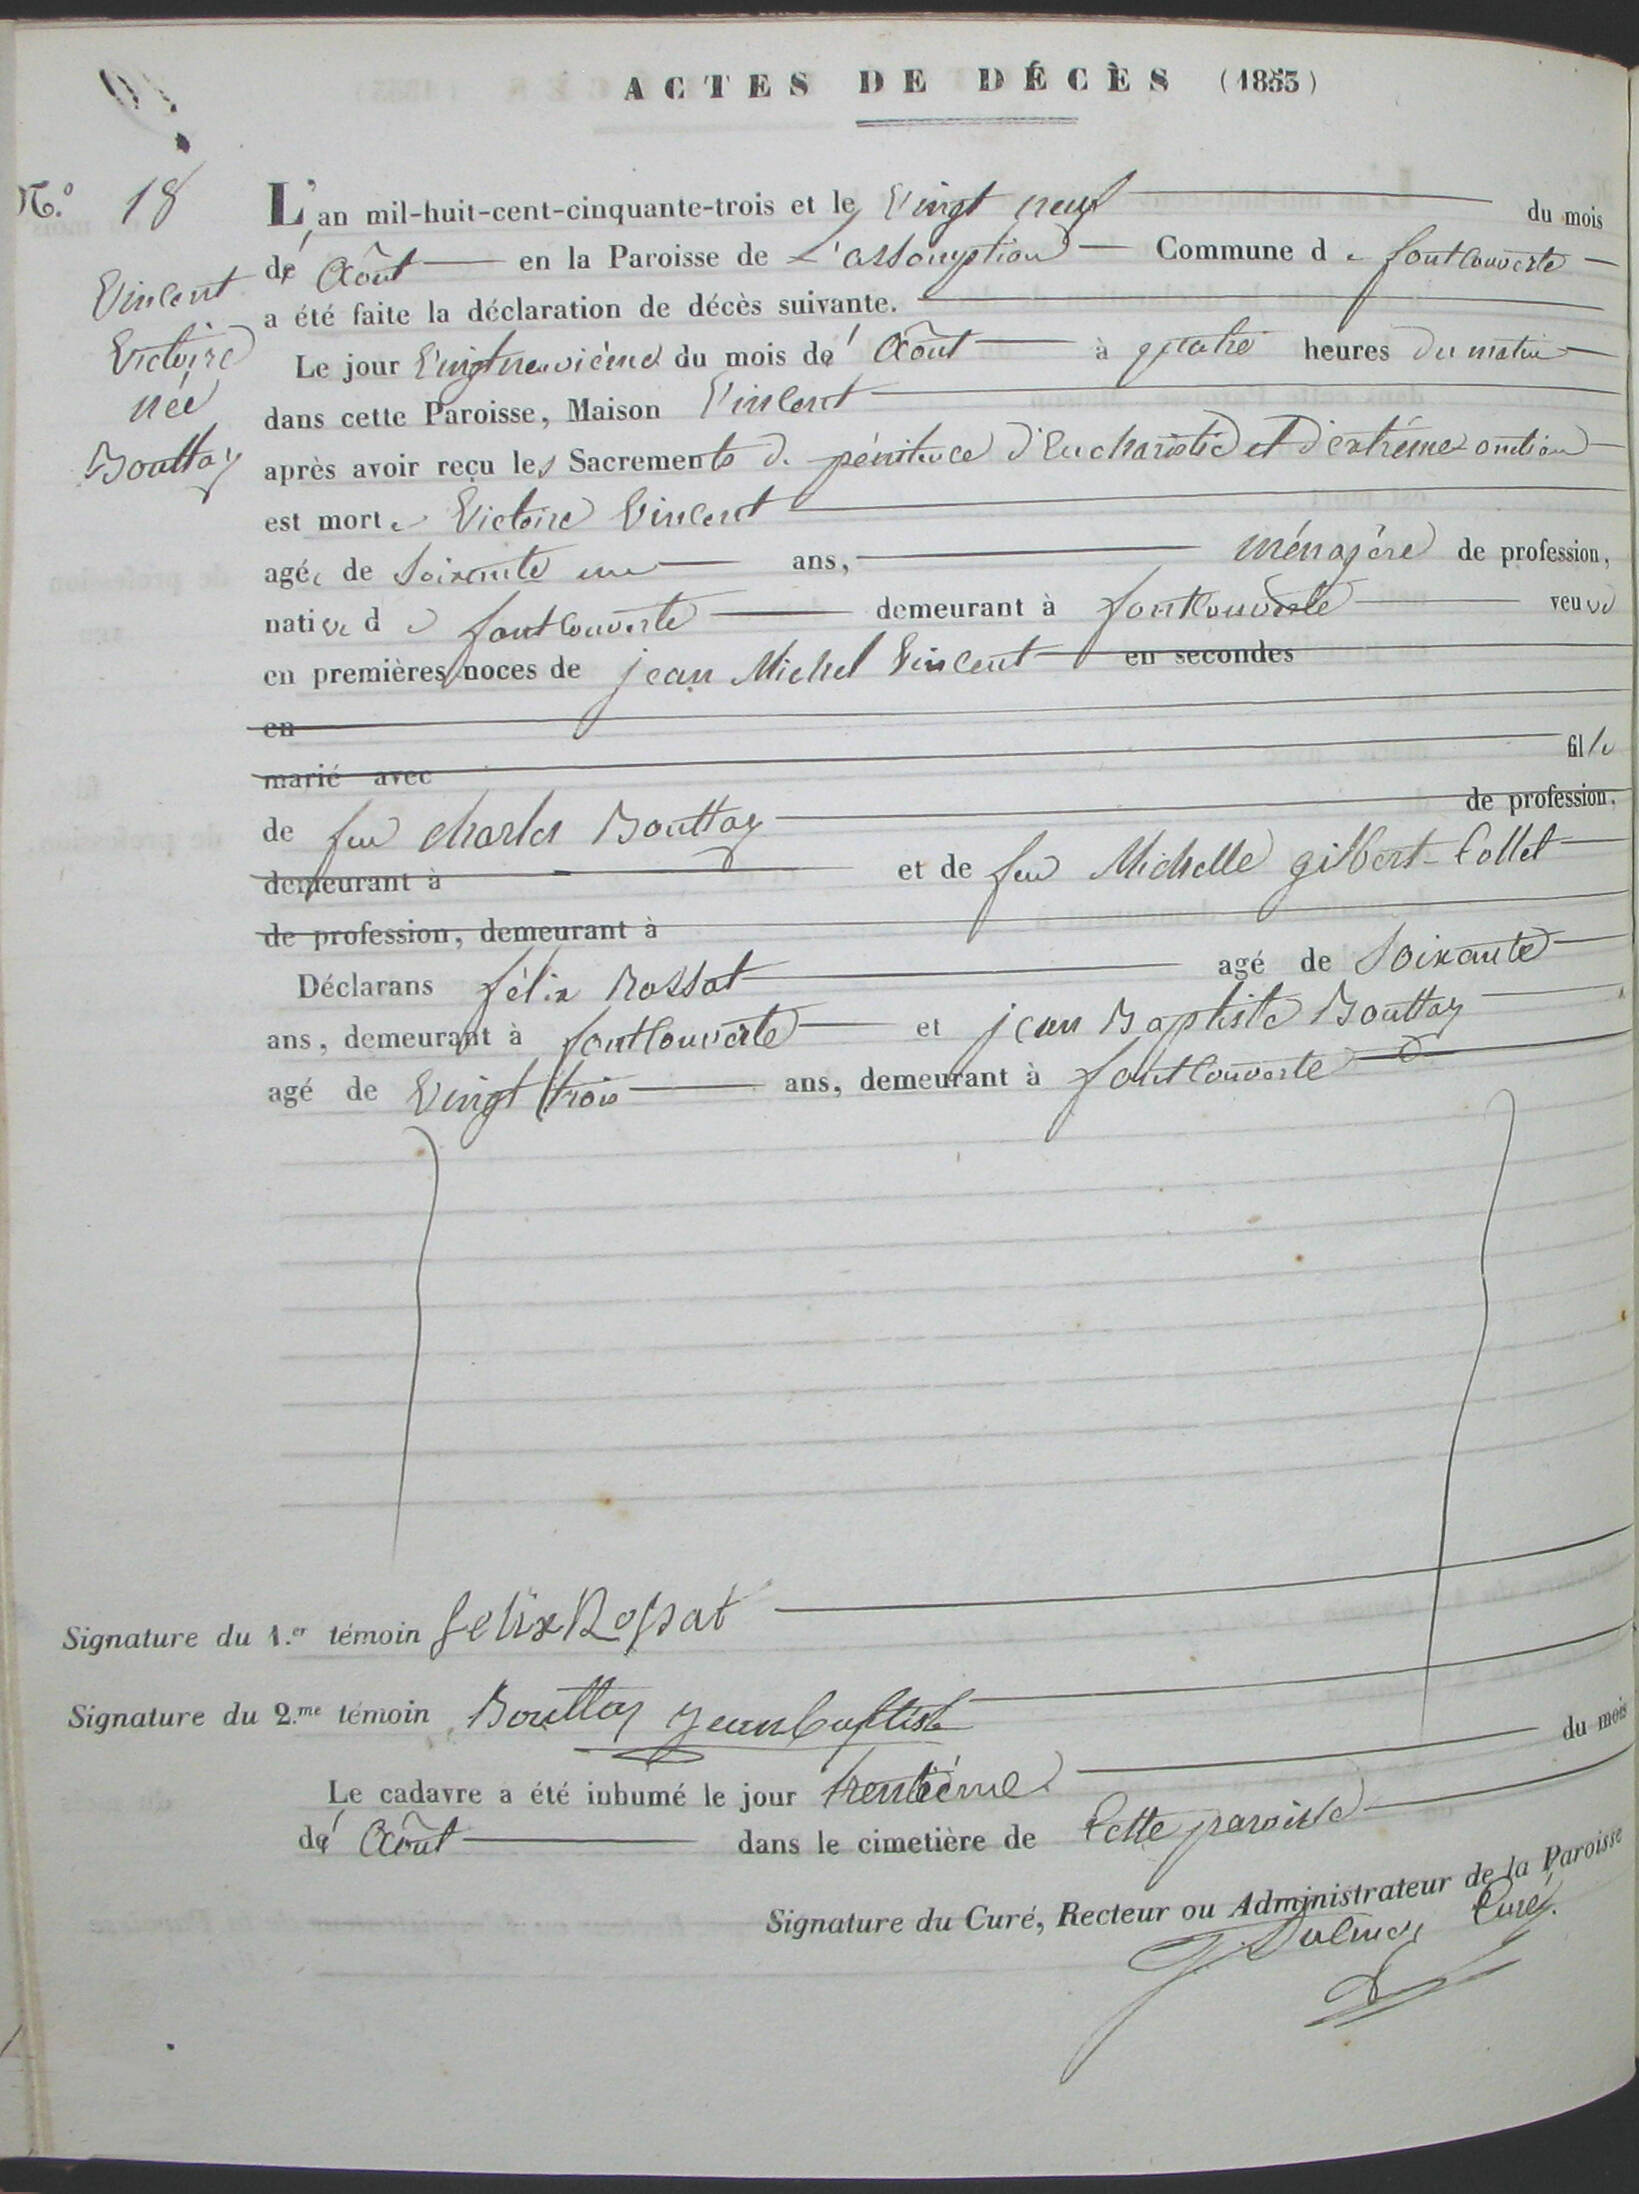 ACTES DE DÉCÈS (1853)
N.º 18
Vincent
Victoire
née
Bouttay
L'an mil-huit-cent-cinquante-trois et le Vingt neuf du mois
d' Aôut en la Paroisse de L'assomption Commune de fontcouverte
a été faite la déclaration de décès suivante.
Le jour Vingtneuvième du mois d' Aôut à quatre heures du matin
dans cette Paroisse, Maison Vincent
après avoir reçu les Sacrements de pénitence d'Eucharistie et d'extrême onction
est morte Victoire Vincent
agée de Soixante un ans, ménagère de profession,
native de fontcouverte demeurant à fontcouverte veuve
en premières noces de jean Michel Vincent en secondes
en
marié avec fille
de feu charles Bouttay de profession,
demeurant à et de feu Michelle gilbert-Collet
de profession, demeurant à
Déclarans félix Rossat agé de Soixante
ans, demeurant à fontcouverte et jean Baptiste Bouttay
agé de Vingt trois ans, demeurant à fontcouverte
Signature du 1.er témoin felix Rossat
Signature du 2.me témoin Bouttay jean baptiste
Le cadavre a été inhumé le jour trentième du mois
d' Aôut dans le cimetière de Cette paroisse
Signature du Curé, Recteur ou Administrateur de la Paroisse
Curé.